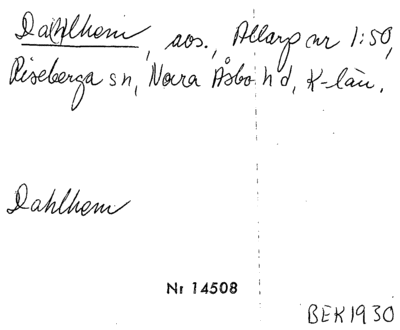 Da(h)lhem, aos., Allarp nr 1:50,
Riseberga sn, Norra Åsbo hd, K-län.
Dahlhem
Nr 14508
BEK 1930